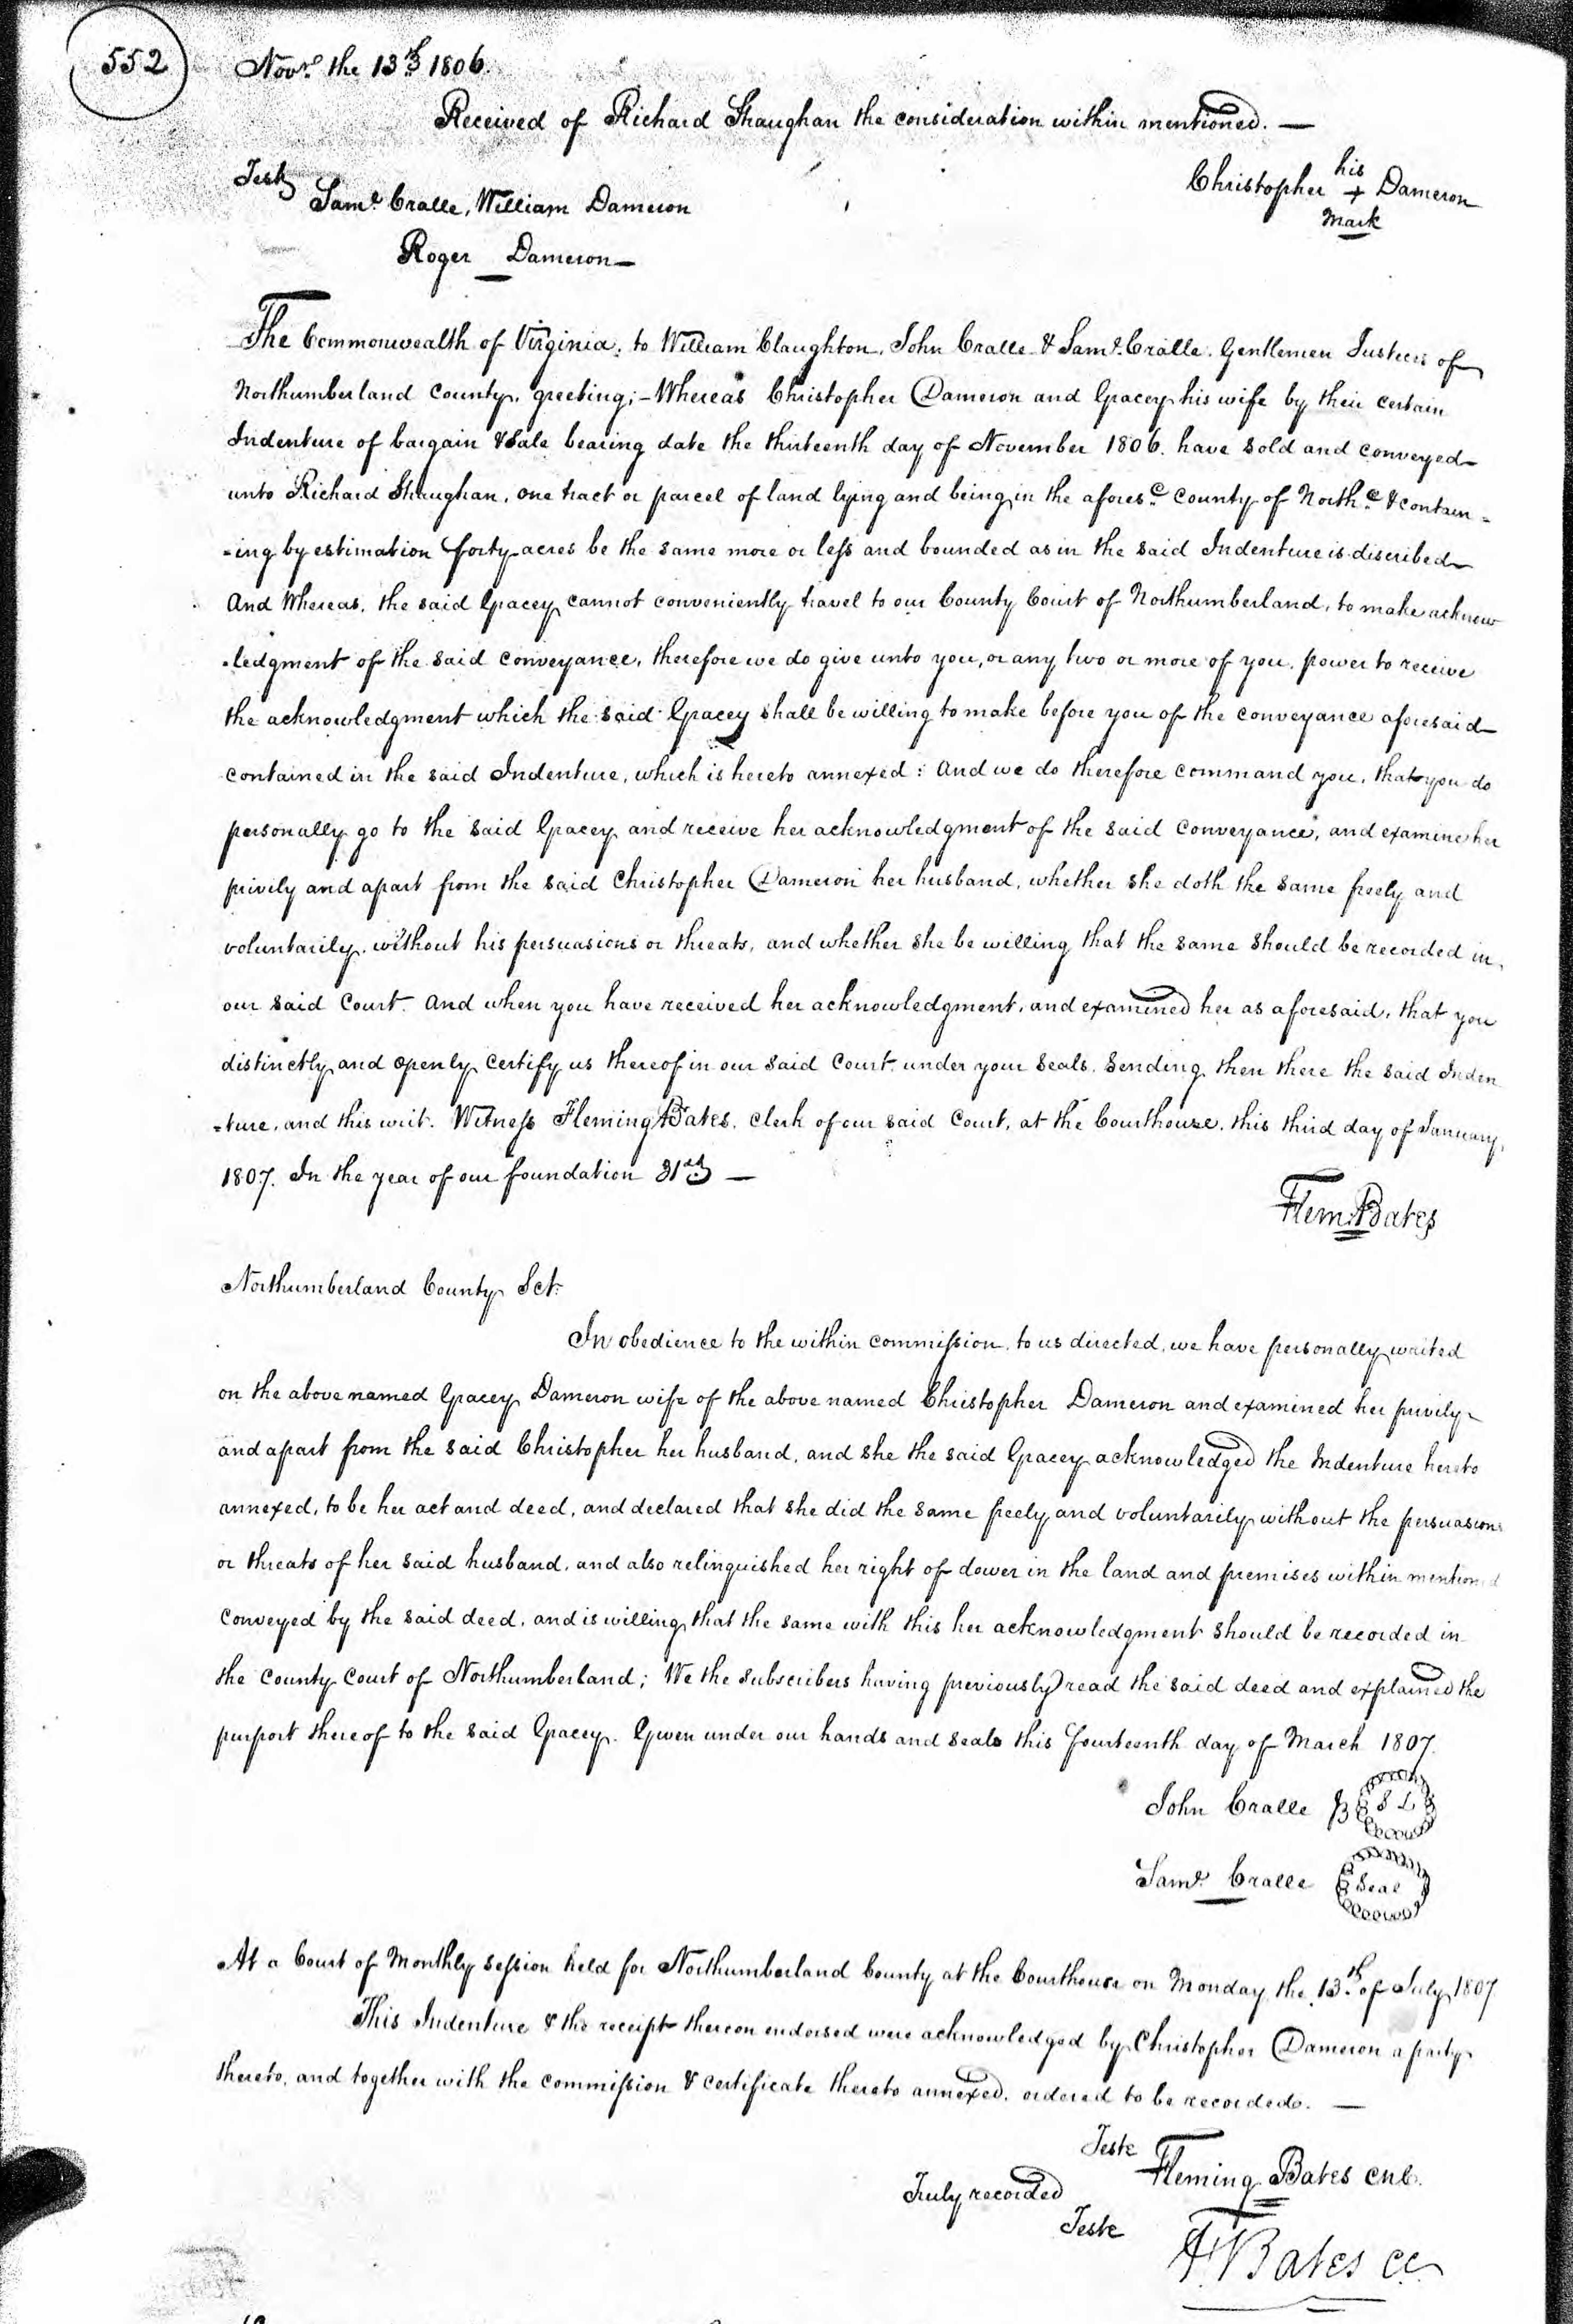 552
Novr. the 13th 1806.
Received of Richard Straughan the consideration within mentioned. —
Teste
Saml. Cralle, William Dameron
Roger Dameron —
his
Christopher + Dameron
mark
The Commonwealth of Virginia, to William Claughton, John Cralle & Saml. Cralle. Gentlemen Justices of
Northumberland County, greeting; - Whereas Christopher Dameron and Gracey his wife by their certain
Indenture of bargain & Sale bearing date the thirteenth day of November 1806. have sold and conveyed
unto Richard Straughan, one tract or parcel of land lying and being in the aforesd. County of Northd. & contain-
-ing by estimation forty acres be the same more or less and bounded as in the said Indenture is discribed
And Whereas, the said Gracey cannot conveniently travel to our County Court of Northumberland, to make acknow
-ledgment of the said conveyance, therefore we do give unto you, or any two or more of you, power to receive
the acknowledgment which the said Gracey shall be willing to make before you of the conveyance aforesaid
contained in the said Indenture, which is hereto annexed: And we do therefore command you, that you do
personally go to the said Gracey and receive her acknowledgment of the said conveyance, and examine her
privily and apart from the said Christopher Dameron her husband, whether she doth the same freely and
voluntarily, without his persuasions or threats, and whether she be willing that the same should be recorded in
our said Court. And when you have received her acknowledgment, and examined her as aforesaid, that you
distinctly and openly certify us thereof in our said Court, under your seals. Sending then there the said Inden
-ture, and this writ. Witness Fleming Bates, Clerk of our said Court, at the Courthouse, this third day of January,
1807. In the year of our foundation 31st —
Flem: Bates
Northumberland County Sct.
In obedience to the within commission, to us directed, we have personally waited
on the above named Gracey Dameron wife of the above named Christopher Dameron and examined her privily
and apart from the said Christopher her husband, and she the said Gracey acknowledged the Indenture hereto
annexed, to be her act and deed, and declared that she did the same freely and voluntarily without the persuasions
or threats of her said husband, and also relinquished her right of dower in the land and premises within mentioned
conveyed by the said deed, and is willing that the same with this her acknowledgment should be recorded in
the County Court of Northumberland; We the Subscribers having previously read the said deed and explained the
purport thereof to the said Gracey. Given under our hands and seals this fourteenth day of March 1807.
John Cralle S L
Saml. Cralle Seal
At a Court of Monthly session held for Northumberland County at the Courthouse on Monday the 13th of July 1807
This Indenture & the receipt thereon endorsed were acknowledged by Christopher Dameron a party
thereto, and together with the commission & certificate thereto annexed, ordered to be recorded. —
Teste
Fleming Bates CNC.
Truly recorded
Teste
F Bates CC